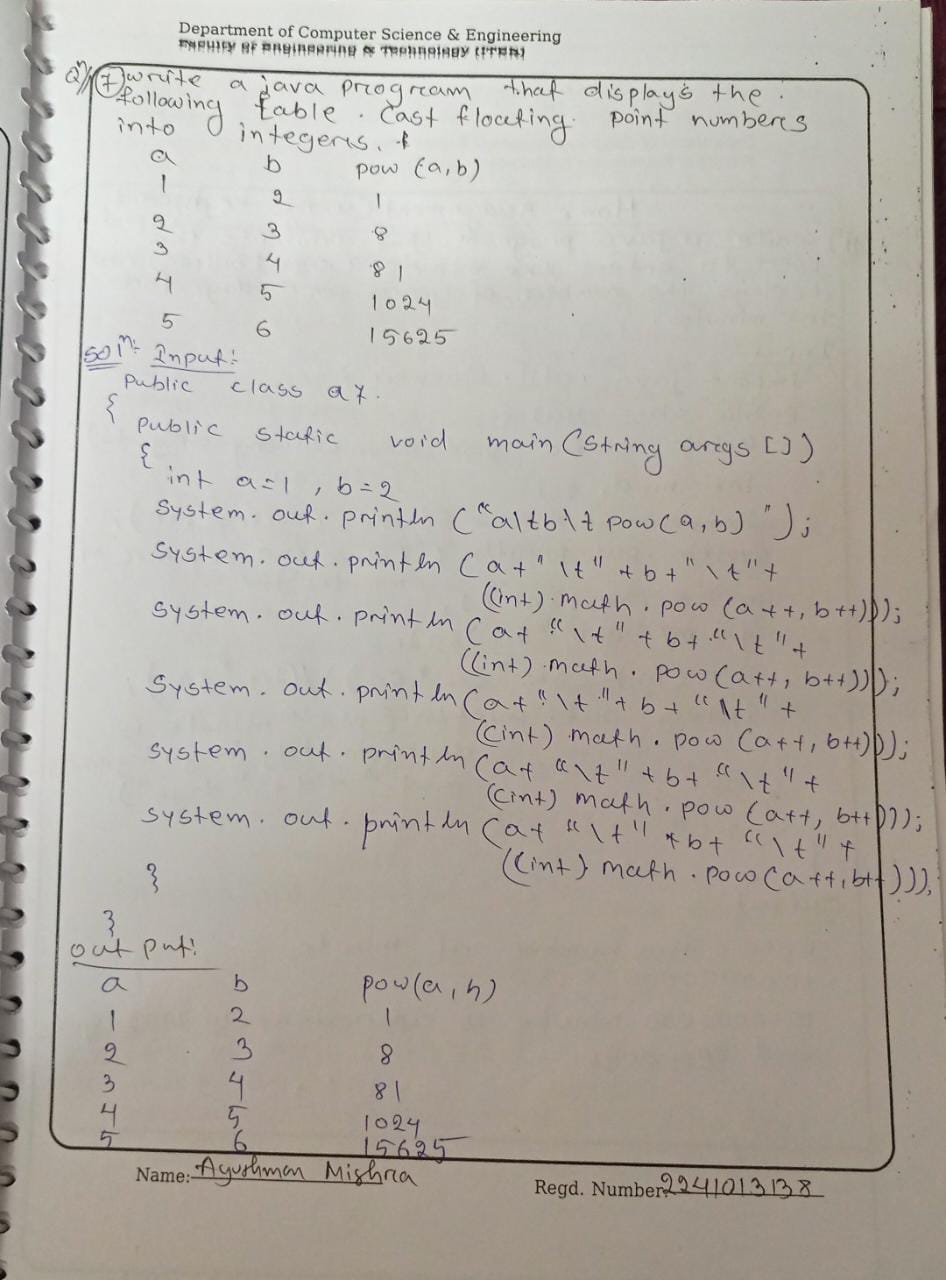 Department of Computer Science & Engineering
Faculty of Engineering & Technology (ITER)
Q7) write a java program that displays the
following table. Cast floating point numbers
into integers.
a b pow (a,b)
1 2 1
2 3 8
3 4 81
4 5 1024
5 6 15625
Solⁿ: Input:
public class a7.
{
public static void main (String args [])
{
int a=1, b=2
System.out.println ("a\tb\t pow(a,b) ");
System.out.println (a+"\t"+b+"\t"+
((int) math.pow (a++, b++)));
System.out.println (a+ "\t"+b+"\t"+
((int) math.pow (a++, b++)));
System.out.println (a+"\t"+b+ "\t"+
((int) math.pow (a++, b++)));
System.out.println (a+ "\t"+b+ "\t"+
((int) math.pow (a++, b++)));
System.out.println (a+ "\t"+b+ "\t"+
((int} math.pow (a++, b++))),
}
}
output:
a b pow(a,b)
1 2 1
2 3 8
3 4 81
4 5 1024
5 6 15625
Name: Ayushman Mishra
Regd. Number: 2241013138